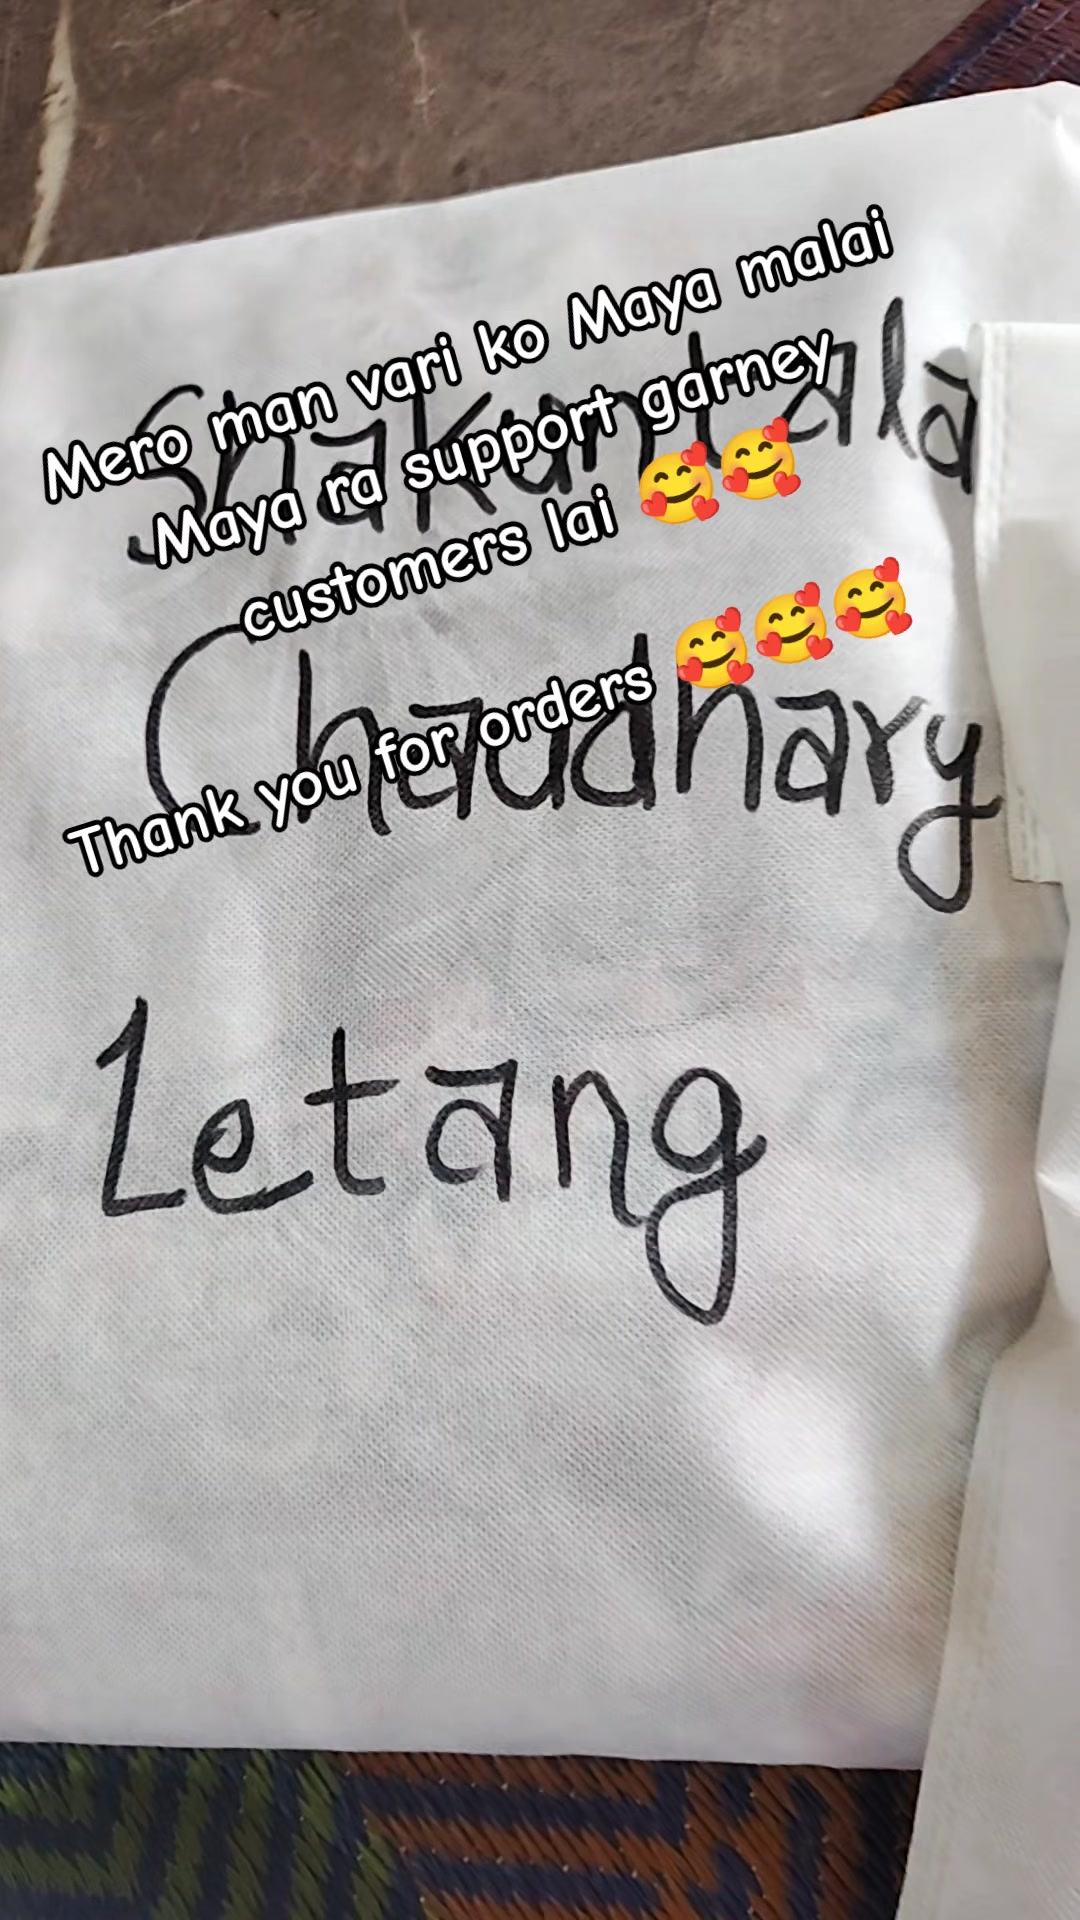 Mero man vari ko Maya malai
Maya ra support garney
customers lai 🥰🥰
Thank you for orders 🥰🥰🥰
Shakuntala
Chaudhary
Letang